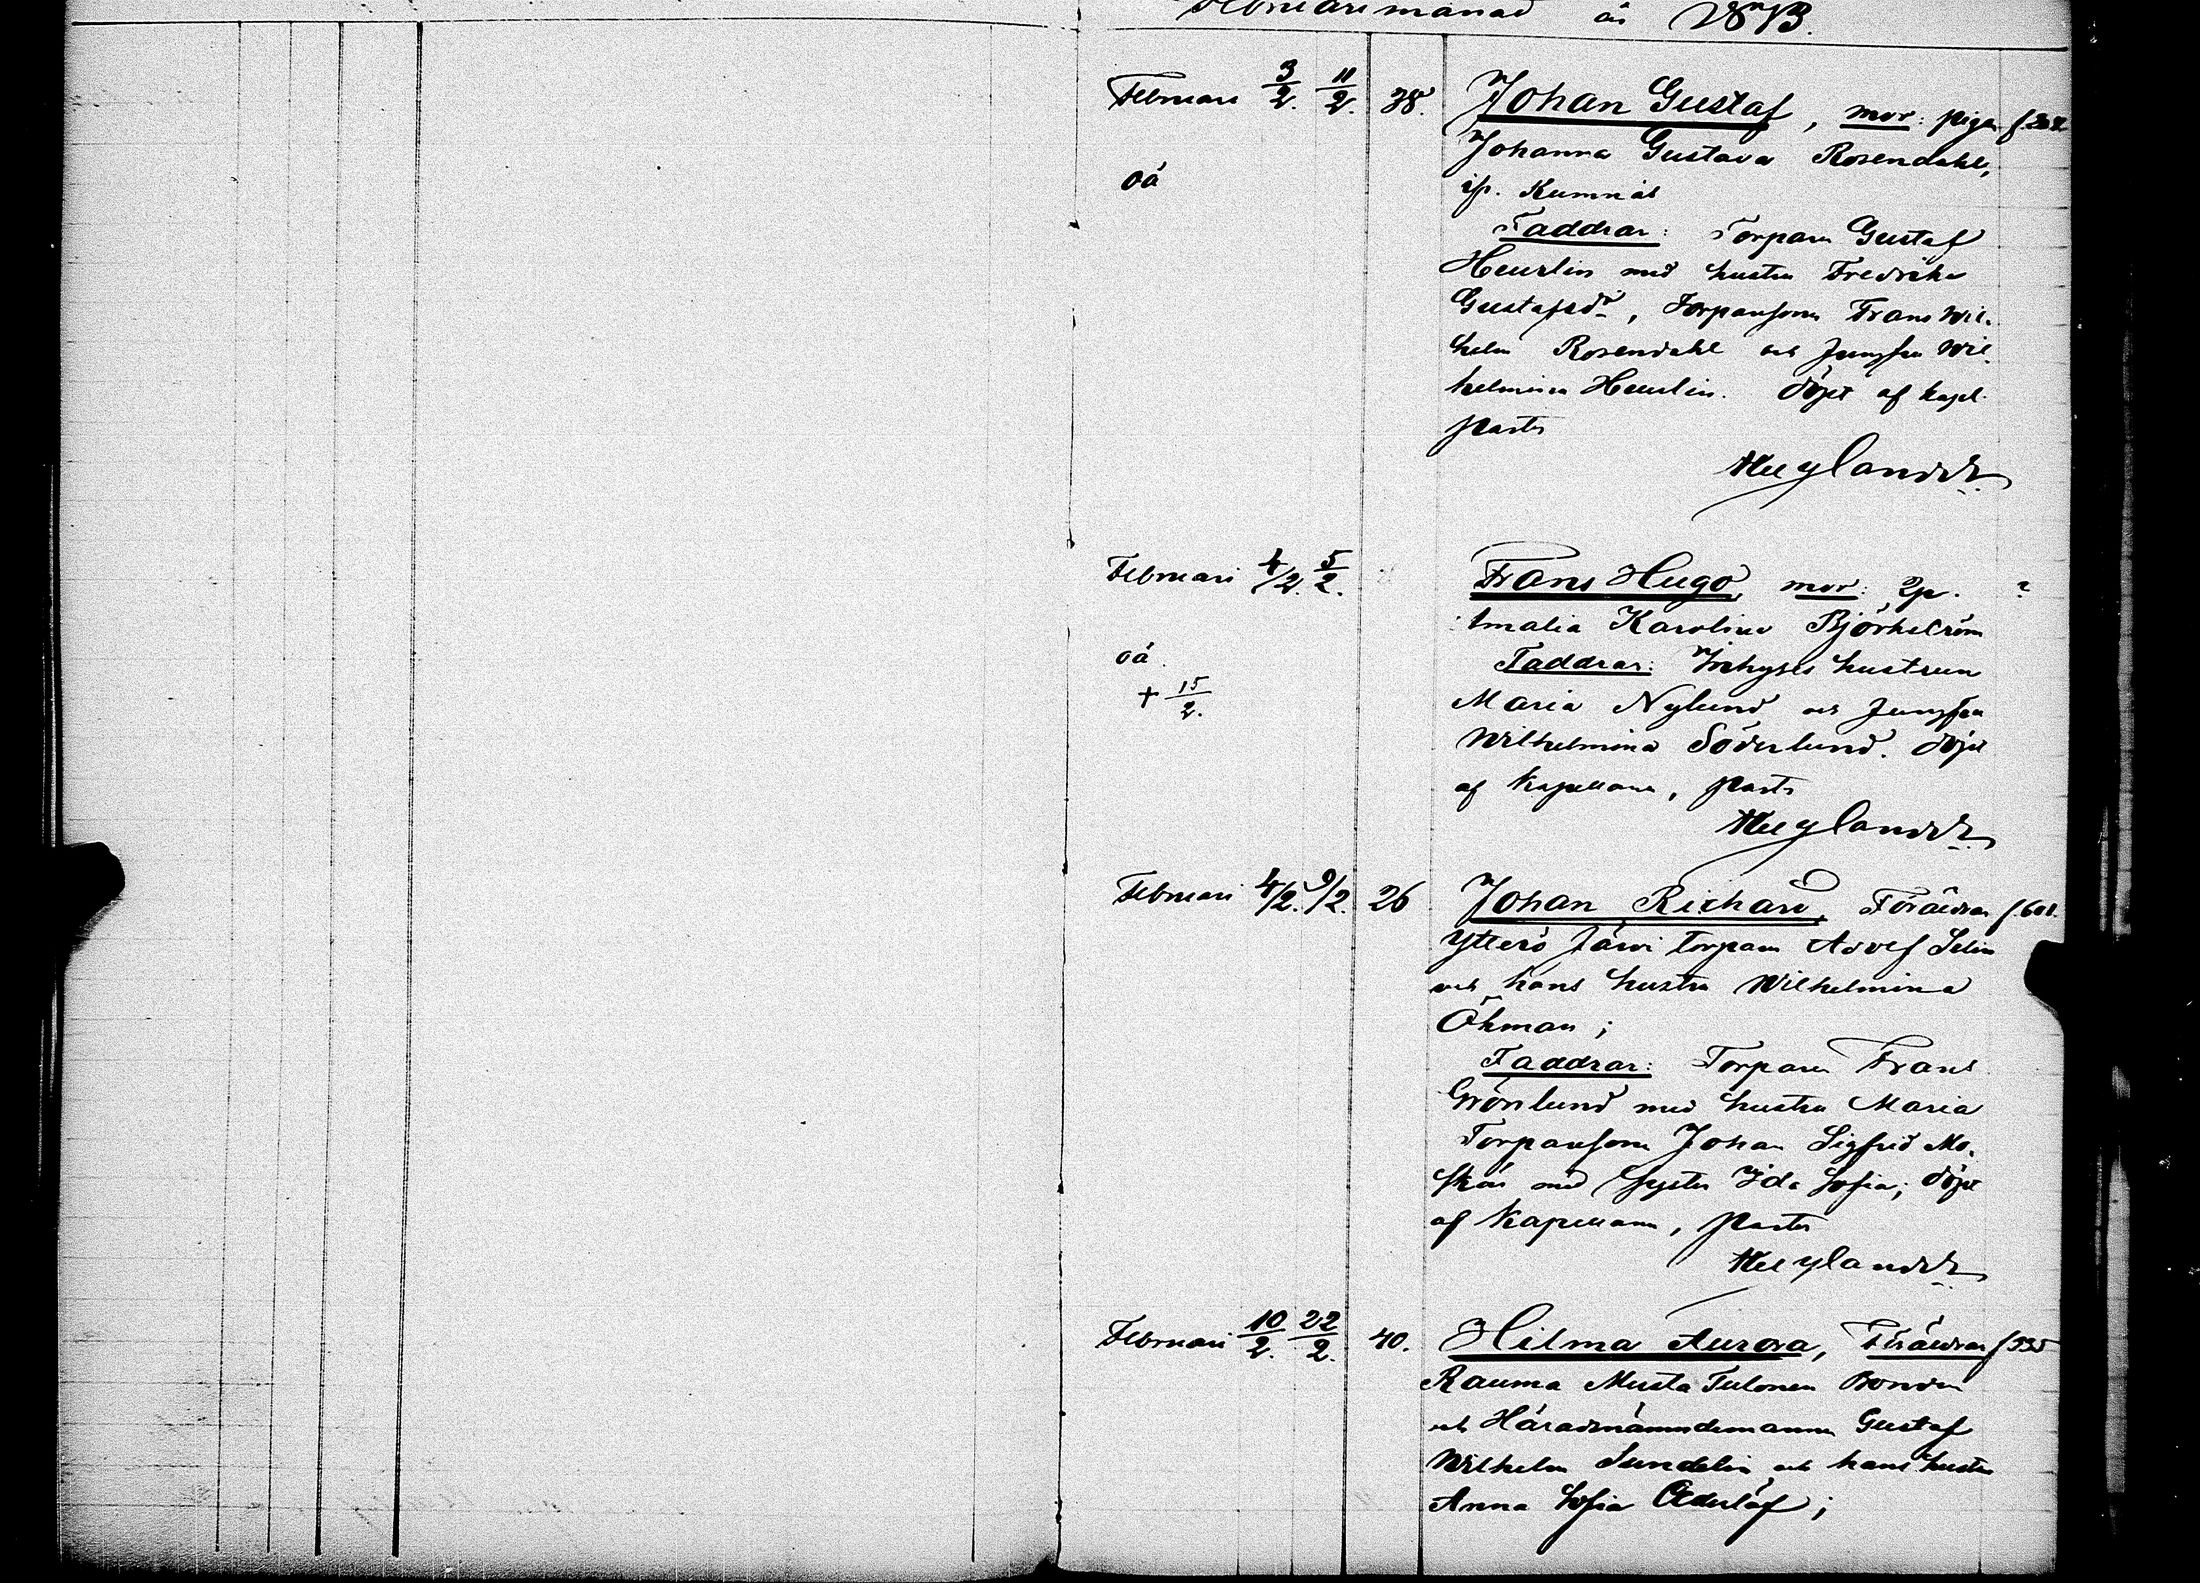 Februari månad år 1873.
Februari 3/2. 11/2. 38. Johan Gustaf, mor: pigan f. 202
Johanna Gustava Rosendahl,
oä ifr. Kumnäs
Faddrar: Torparn Gustaf
Heurlin med hustru Fredrika
Gustafsdr, Torparsonen Frans Wil-
helm Rosendahl och Jungfru Wil-
helmina Heurlin. döpt af kapl.
pastor
Februari 4/2. 5/2. Frans Hugo, mor: ?
Amalia Karolina Björkström
oä. Faddrar: Inhyses hustrun
+ 15/2. Maria Nylund och Jungfru
Wilhelmina Söderlund. döpt
af Kapellanen, pastor
Februari 4/2. 9/2. 26 Johan Richard, Föräldrar f. 601.
Ytterö Järvi torparn Adolf Selin
och hans hustru Wilhelmina
Öhman;
Faddrar: Torparn Frans
Grönlund med hustru Maria
Torparsonen Johan Sigfrid Mo-
med syster Ida Sofia; döpt
af Kapellanen, Pastor
Februari 10/2. 22/2. 40. Hilma Aurora, Föräldrar f 335
Rauma Musta Tulonen Bonden
och Häradsnämndemannen Gustaf
Wilhelm Sundelin och hans hustru
Anna Sofia Cederlöf;